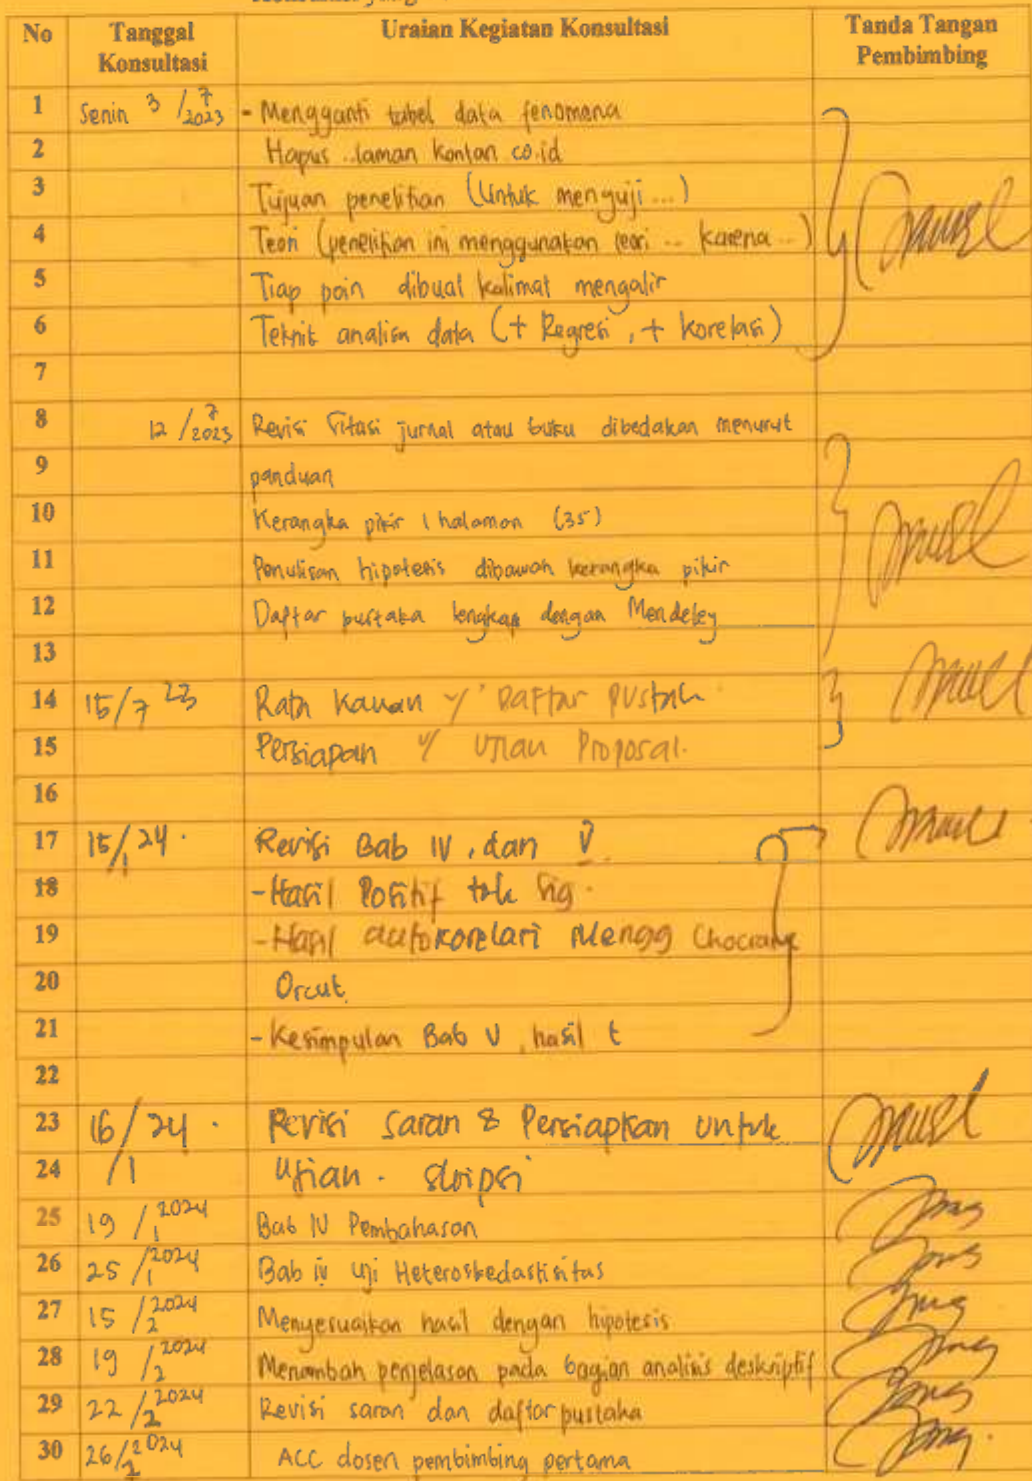 No Tanggal Konsultasi Uraian Kegiatan Konsultasi Tanda Tangan Pembimbing
1 Senin 3/7 2023 - Mengganti tabel data fenomena
2 Hapus laman kontan co.id
3 Tujuan penelitian (Untuk menguji ...)
4 Teori (penelitian ini menggunakan teori ... karena ...)
5 Tiap poin dibual kalimat mengalir
6 Teknik analisa data (+ Regresi, + korelasi)
7
8 12/7 2023 Revisi Sitasi jurnal atau buku dibedakan menurut
9 panduan
10 Kerangka pikir 1 halaman (35)
11 Penulisan hipotesis dibawah kerangka pikir
12 Daftar pustaka lengkap dengan Mendeley
13
14 15/7 23 Rata Kanan y/ Daftar pustak
15 Persiapan y/ Ujian Proposal.
16
17 15/1 24. Revisi Bab IV, dan V
18 - Hasil Positif tak sig.
19 - Hasil autokorelasi Mengg
20 Orcut
21 - Kesimpulan Bab V, hasil t
22
23 16/24. Revisi saran & Persiapkan untuk
24 /1 Ujian. skripsi
25 19/1 2024 Bab IV Pembahasan
26 25/1 2024 Bab iv uji Heteroskedastisitas
27 15/2 2024 Menyesuaikan hasil dengan hipotesis
28 19/2 2024 Menambah penjelasan pada bagian analisis deskriptif
29 22/2 2024 Revisi saran dan daftar pustaka
30 26/2 2024 ACC dosen pembimbing pertama